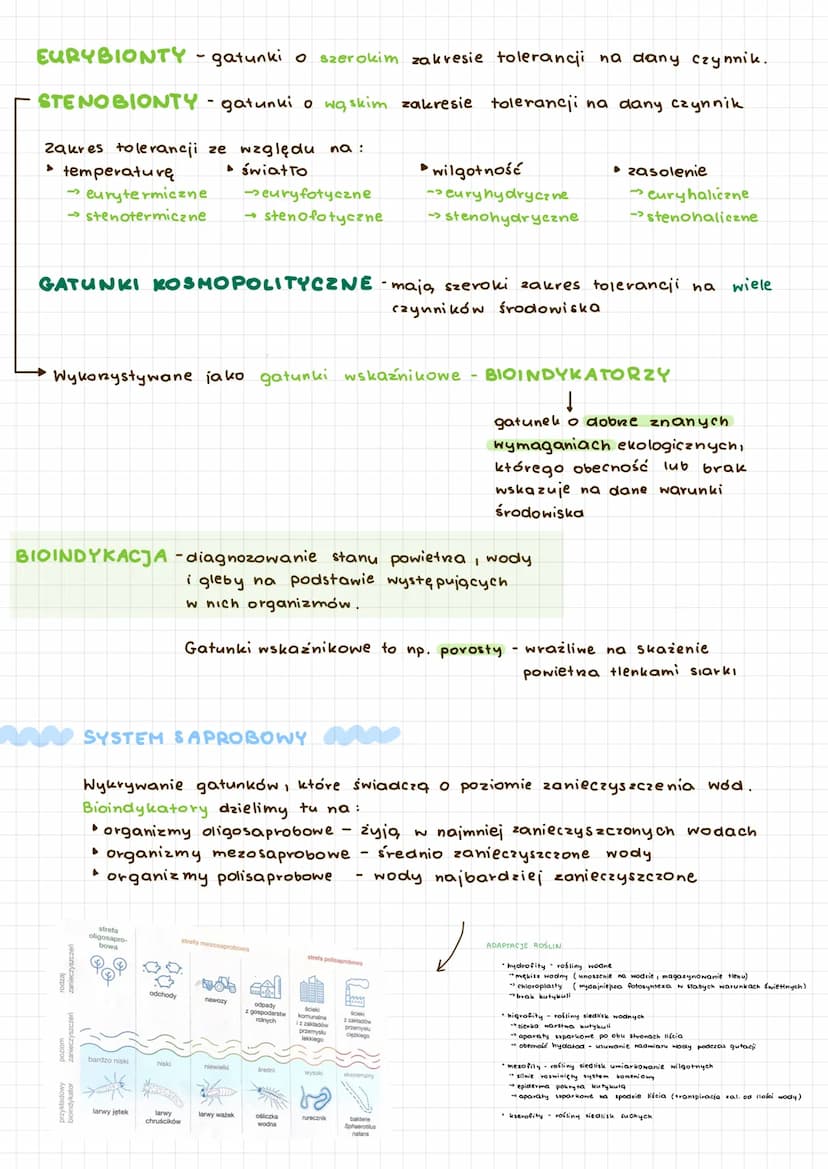 EURYBIONTY - gatunki o szerokim zakresie tolerancji na dany czynnik.
STENOBIONTY - gatunki o wąskim zakresie tolerancji na dany czynnik
Zakres tolerancji ze względu na:
‣ temperaturę ‣ światło ‣ wilgotność ‣ zasolenie
→ eurytermiczne → euryfotyczne → euryhydryczne → euryhaliczne
→ stenotermiczne → stenofotyczne → stenohydryczne → stenohaliczne
GATUNKI KOSMOPOLITYCZNE - mają szeroki zakres tolerancji na wiele
czynników środowiska
Wykorzystywane jako gatunki wskaźnikowe - BIOINDYKATORZY
gatunek o dobrze znanych
wymaganiach ekologicznych,
którego obecność lub brak
wskazuje na dane warunki
środowiska
BIOINDYKACJA - diagnozowanie stanu powietrza, wody
i gleby na podstawie występujących
w nich organizmów.
Gatunki wskaźnikowe to np. porosty - wrażliwe na skażenie
powietrza tlenkami siarki
SYSTEM SAPROBOWY
Wykrywanie gatunków, które świadczą o poziomie zanieczyszczenia wód.
Bioindykatory dzielimy tu na:
‣ organizmy oligosaprobowe - żyją w najmniej zanieczyszczonych wodach
‣ organizmy mezosaprobowe - średnio zanieczyszczone wody
‣ organizmy polisaprobowe - wody najbardziej zanieczyszczone
strefa
oligosapro-
bowa
strefa mezosaprobowa
strefa polisaprobowa
rodzaj
zanieczyszczeń
odchody
nawozy
odpady
z gospodarstw
rolnych
ścieki
komunalne
i z zakładów
przemysłu
lekkiego
ścieki
z zakładów
przemysłu
ciężkiego
poziom
zanieczyszczeń
bardzo niski niski niewielki średni wysoki ekstremalny
przykładowy
bioindykator
larwy jętek
larwy
chruścików
larwy ważek
ośliczka
wodna
rurecznik
bakterie
Sphaerotilus
natans
ADAPTACJE ROŚLIN
‣ hydrofity - rośliny wodne
→ miękisz wodny (unoszenie na wodzie, magazynowanie tlenu)
→ chloroplasty (wydajniejsza fotosynteza w słabych warunkach świetlnych)
→ brak kutykuli
‣ higrofity - rośliny siedlisk wodnych
→ cienka warstwa kutykuli
→ aparaty szparkowe po obu stronach liścia
→ obecność hydatod - usuwanie nadmiaru wody podczas gutacji
‣ mezofity - rośliny siedlisk umiarkowanie wilgotnych
→ silnie rozwinięty system korzeniowy
→ epiderma pokryta kutykulą
→ aparaty szparkowe na spodzie liścia (transpiracja zal. od ilości wody)
‣ kserofity - rośliny siedlisk suchych